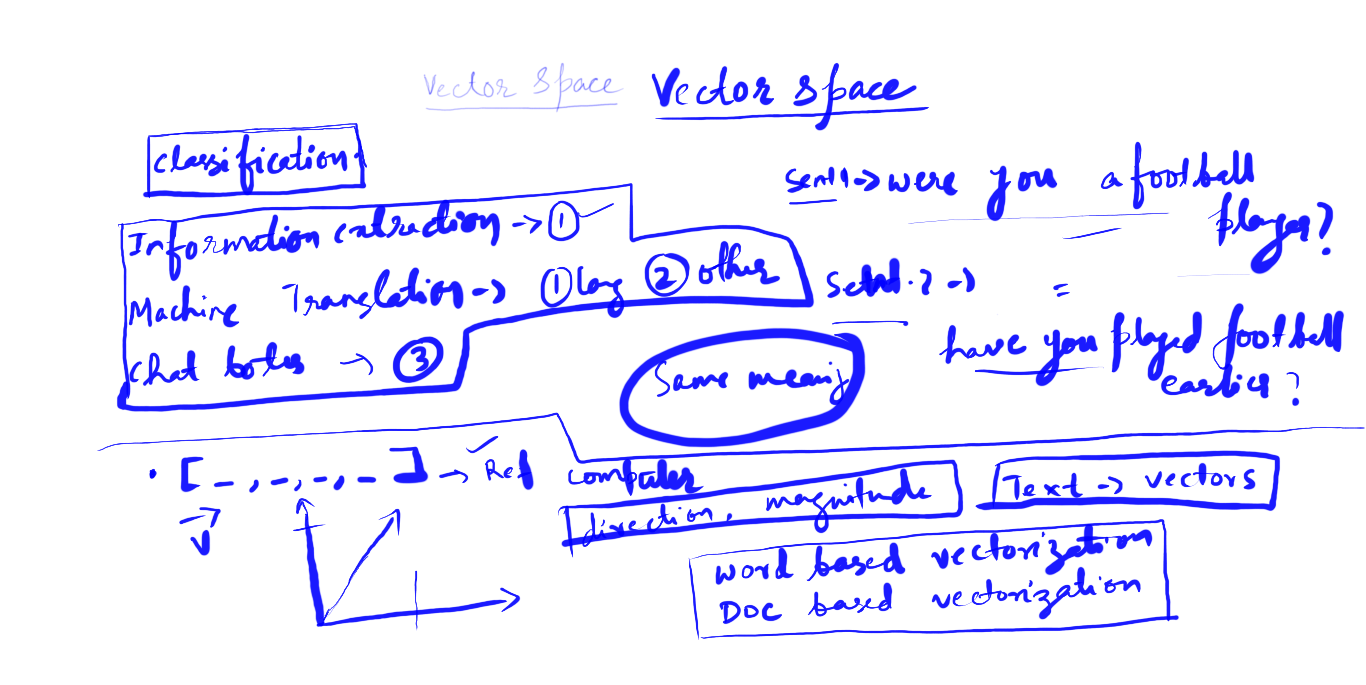 Vector Space Vector space
classification
Information extraction -> ① ✓
Machine Translation -> ① lang ② other
Chat botes -> ③
Sent1 -> were you a football
player?
Sent.2 -> =
have you played football
earlier?
Same meaning
• [ _ , _ , _ , _ ] -> ✓ Ref computer
direction, magnitude
Text -> vectors
v
word based vectorization
DOC based vectorization